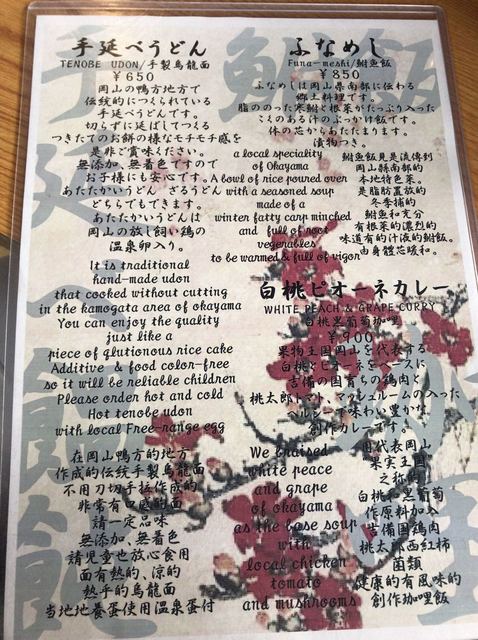 手延べうどん
TENOBE UDON/手製烏龍面
￥650
岡山の鴨方地方で
伝統的につくられている
手延べうどんです。
切らずに延ばしてつくる
つきたてのお餅の様なモチモチ感を
是非ご賞味ください。
無添加、無着色ですので
お子様にも安心です。
あたたかいうどん ざるうどん
どちらもできます。
あたたかいうどんは
岡山の放し飼い鶏の
温泉卵入り。
It is traditional
hand-made udon
that cooked without cutting
in the kamogata area of okayama
You can enjoy the quality
just like a
piece of glutionous rice cake
Additive & food color-free
so it will be reliable children
Please order hot and cold
Hot tenobe udon
with local Free-range egg
在岡山鴨方的地方
作成的伝統手製烏龍面
不用刀切手拉作成的
非常有口感的面
請一定品味
無添加、無着色
請児童也放心食用
面有熱的、涼的
熱乎的烏龍面
当地地養蛋使用温泉蛋付
ふなめし
Funa-meshi/鮒魚飯
￥850
ふなめしは岡山県南部に伝わる
郷土料理です。
脂ののった寒鮒と根菜がたっぷり入った
こくのある汁のぶっかけ飯です。
体の芯からあたたまります。
漬物つき。
a local speciality
of Okayama
A bowl of rice poured over
with a seasoned soup
made of a
winter fatty carp minched
and full of root
vegenables
to be warmed & full of vigor
鮒魚飯見是流傳到
岡山縣南部的
本地特色菜。
是脂肪置放的
冬季捕的
鮒魚和充分
有根菜的濃烈的
味道有的汁液的鮒飯。
由身體芯暖和。
白桃ピオーネカレー
WHITE PEACH & GRAPE CURRY
白桃黒葡萄咖喱
￥900
果物王国岡山を代表する
白桃とピオーネをベースに
吉備の国育ちの鶏肉と
桃太郎トマト、マッシュルームの入った
ヘルシーで味わい豊かな
創作カレーです。
We braised
white peace
and grape
of okayama
as the base soup
with
local chicken
tomato
and mushrooms
用代表岡山
果実王国
之称的
白桃和黒葡萄
作原料加入
吉備国鶏肉
桃太郎西紅柿
菌類
健康的有風味的
創作咖喱飯